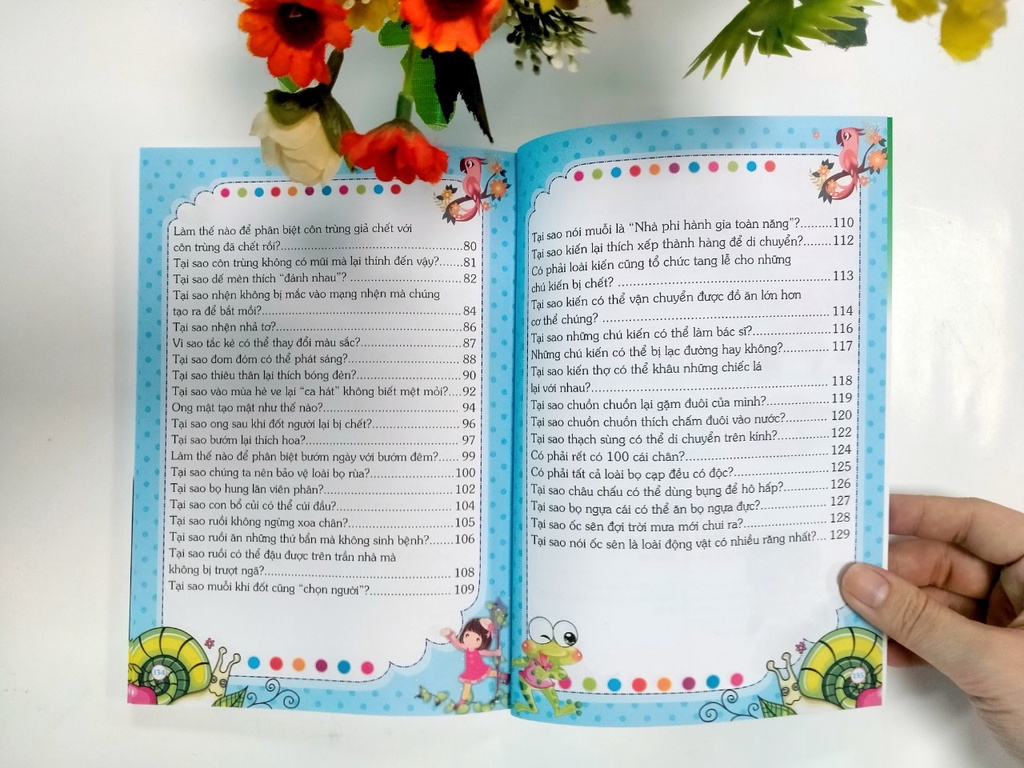 Làm thế nào để phân biệt côn trùng giả chết với
côn trùng đã chết rồi?..........80
Tại sao côn trùng không có mũi mà lại thính đến vậy?......81
Tại sao dế mèn thích “đánh nhau”? .......... 82
Tại sao nhện không bị mắc vào mạng nhện mà chúng
tạo ra để bắt mồi?.......... 84
Tại sao nhện nhả tơ?.......... 86
Vì sao tắc kè có thể thay đổi màu sắc?.......... 87
Tại sao đom đóm có thể phát sáng?.......... 88
Tại sao thiêu thân lại thích bóng đèn?.......... 90
Tại sao vào mùa hè ve lại “ca hát” không biết mệt mỏi?....92
Ong mật tạo mật như thế nào?.......... 94
Tại sao ong sau khi đốt người lại bị chết?.......... 96
Tại sao bướm lại thích hoa?.......... 97
Làm thế nào để phân biệt bướm ngày với bướm đêm?...... 99
Tại sao chúng ta nên bảo vệ loài bọ rùa?.......... 100
Tại sao bọ hung lăn viên phân?.......... 102
Tại sao con bổ củi có thể cúi đầu?.......... 104
Tại sao ruồi không ngừng xoa chân?.......... 105
Tại sao ruồi ăn những thứ bẩn mà không sinh bệnh?.......106
Tại sao ruồi có thể đậu được trên trần nhà mà
không bị trượt ngã?.......... 108
Tại sao muỗi khi đốt cũng “chọn người”?.......... 109
154
Tại sao nói muỗi là “Nhà phi hành gia toàn năng”?.........110
Tại sao kiến lại thích xếp thành hàng để di chuyển?........112
Có phải loài kiến cũng tổ chức tang lễ cho những
chú kiến bị chết? .......... 113
Tại sao kiến có thể vận chuyển được đồ ăn lớn hơn
cơ thể chúng? .......... 114
Tại sao những chú kiến có thể làm bác sĩ?.......... 116
Những chú kiến có thể bị lạc đường hay không?.......... 117
Tại sao kiến thợ có thể khâu những chiếc lá
lại với nhau?.......... 118
Tại sao chuồn chuồn lại gặm đuôi của mình?.......... 119
Tại sao chuồn chuồn thích chấm đuôi vào nước?.......... 120
Tại sao thạch sùng có thể di chuyển trên kính?.......... 122
Có phải rết có 100 cái chân?.......... 124
Có phải tất cả loài bọ cạp đều có độc?.......... 125
Tại sao châu chấu có thể dùng bụng để hô hấp?.......... 126
Tại sao bọ ngựa cái có thể ăn bọ ngựa đực?.......... 127
Tại sao ốc sên đợi trời mưa mới chui ra?.......... 128
Tại sao nói ốc sên là loài động vật có nhiều răng nhất?... 129
155